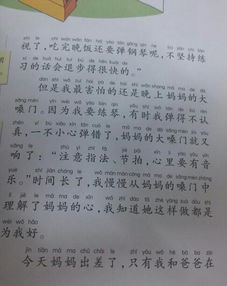 视了，吃完晚饭还要弹钢琴呢，不坚持练
习的话会退步得很快的。”
但是我最害怕的还是晚上妈妈的大
嗓门。因为我要练琴，有时我弹得不认
真，一不小心弹错了，妈妈的大嗓门就又
响了：“注意指法、节拍，心里要有音
乐。”时间长了，我慢慢从妈妈的嗓门中
理解了妈妈的心，我知道她这样做都是
为我好。
今天妈妈出差了，只有我和爸爸在